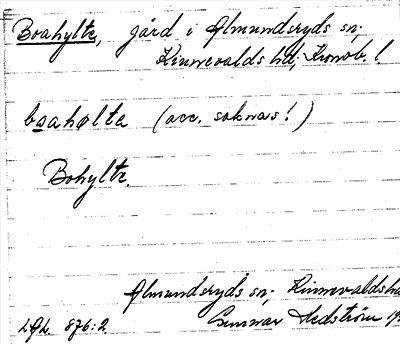 Boahylte, gård i Almundsryds sn;
Kinnevalds hd; Kronob. l.
boahølta (acc. saknas!)
Bohylte.
Almundsryds sn; Kinnevalds
LAL 876:2. Gunnar Hedström